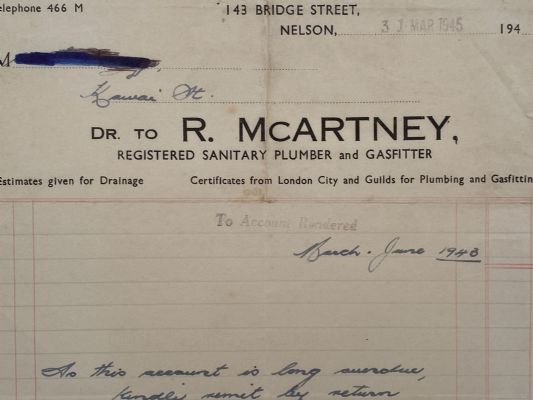 Telephone 466 M
143 BRIDGE STREET,
NELSON, 31 MAR 1945 194
M
Kawai St.
DR. TO R. MCARTNEY,
REGISTERED SANITARY PLUMBER and GASFITTER
Estimates given for Drainage Certificates from London City and Guilds for Plumbing and Gasfittin
To Account Rendered
March - June 1943
As this account is long overdue,
kindly remit by return